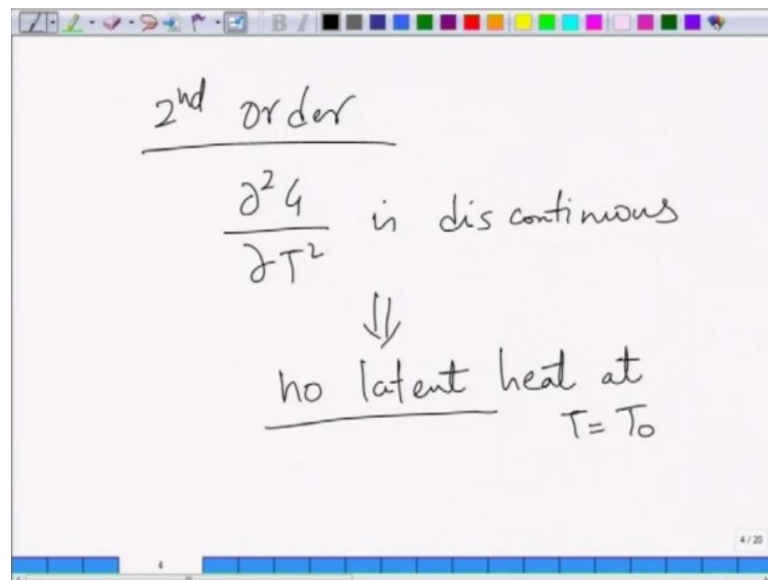 2nd order
∂²G
∂T²
is discontinuous
⇓
no latent heat at
T = T0
4/20
4